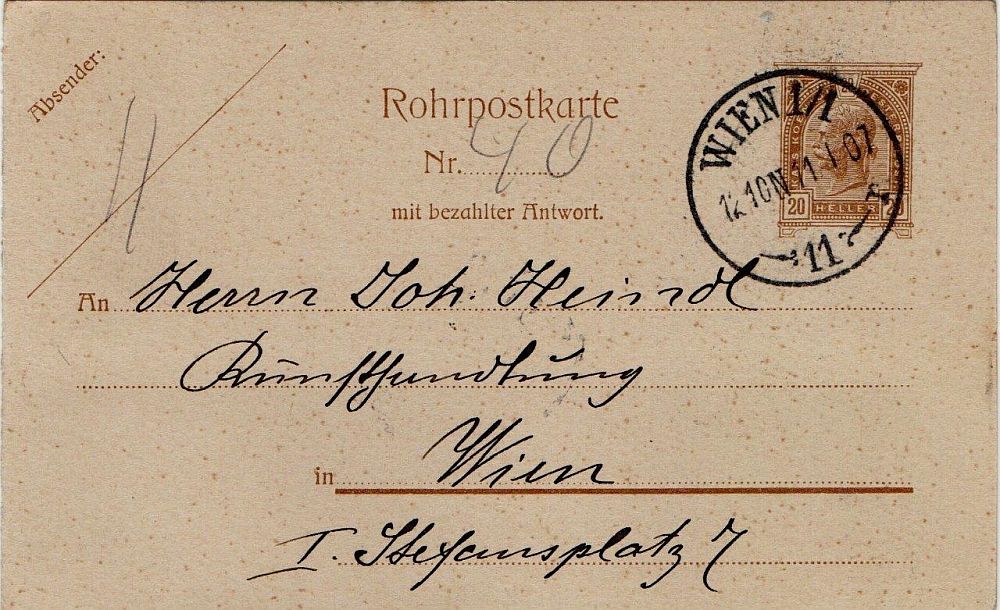 Absender:
11
Rohrpostkarte
Nr. 40
mit bezahlter Antwort.
WIEN 1/1
12 10N 11 I 07
11
20 HELLER 2
An Herrn Joh. Heindl
Kunsthandlung
in Wien
I. Stefansplatz 7